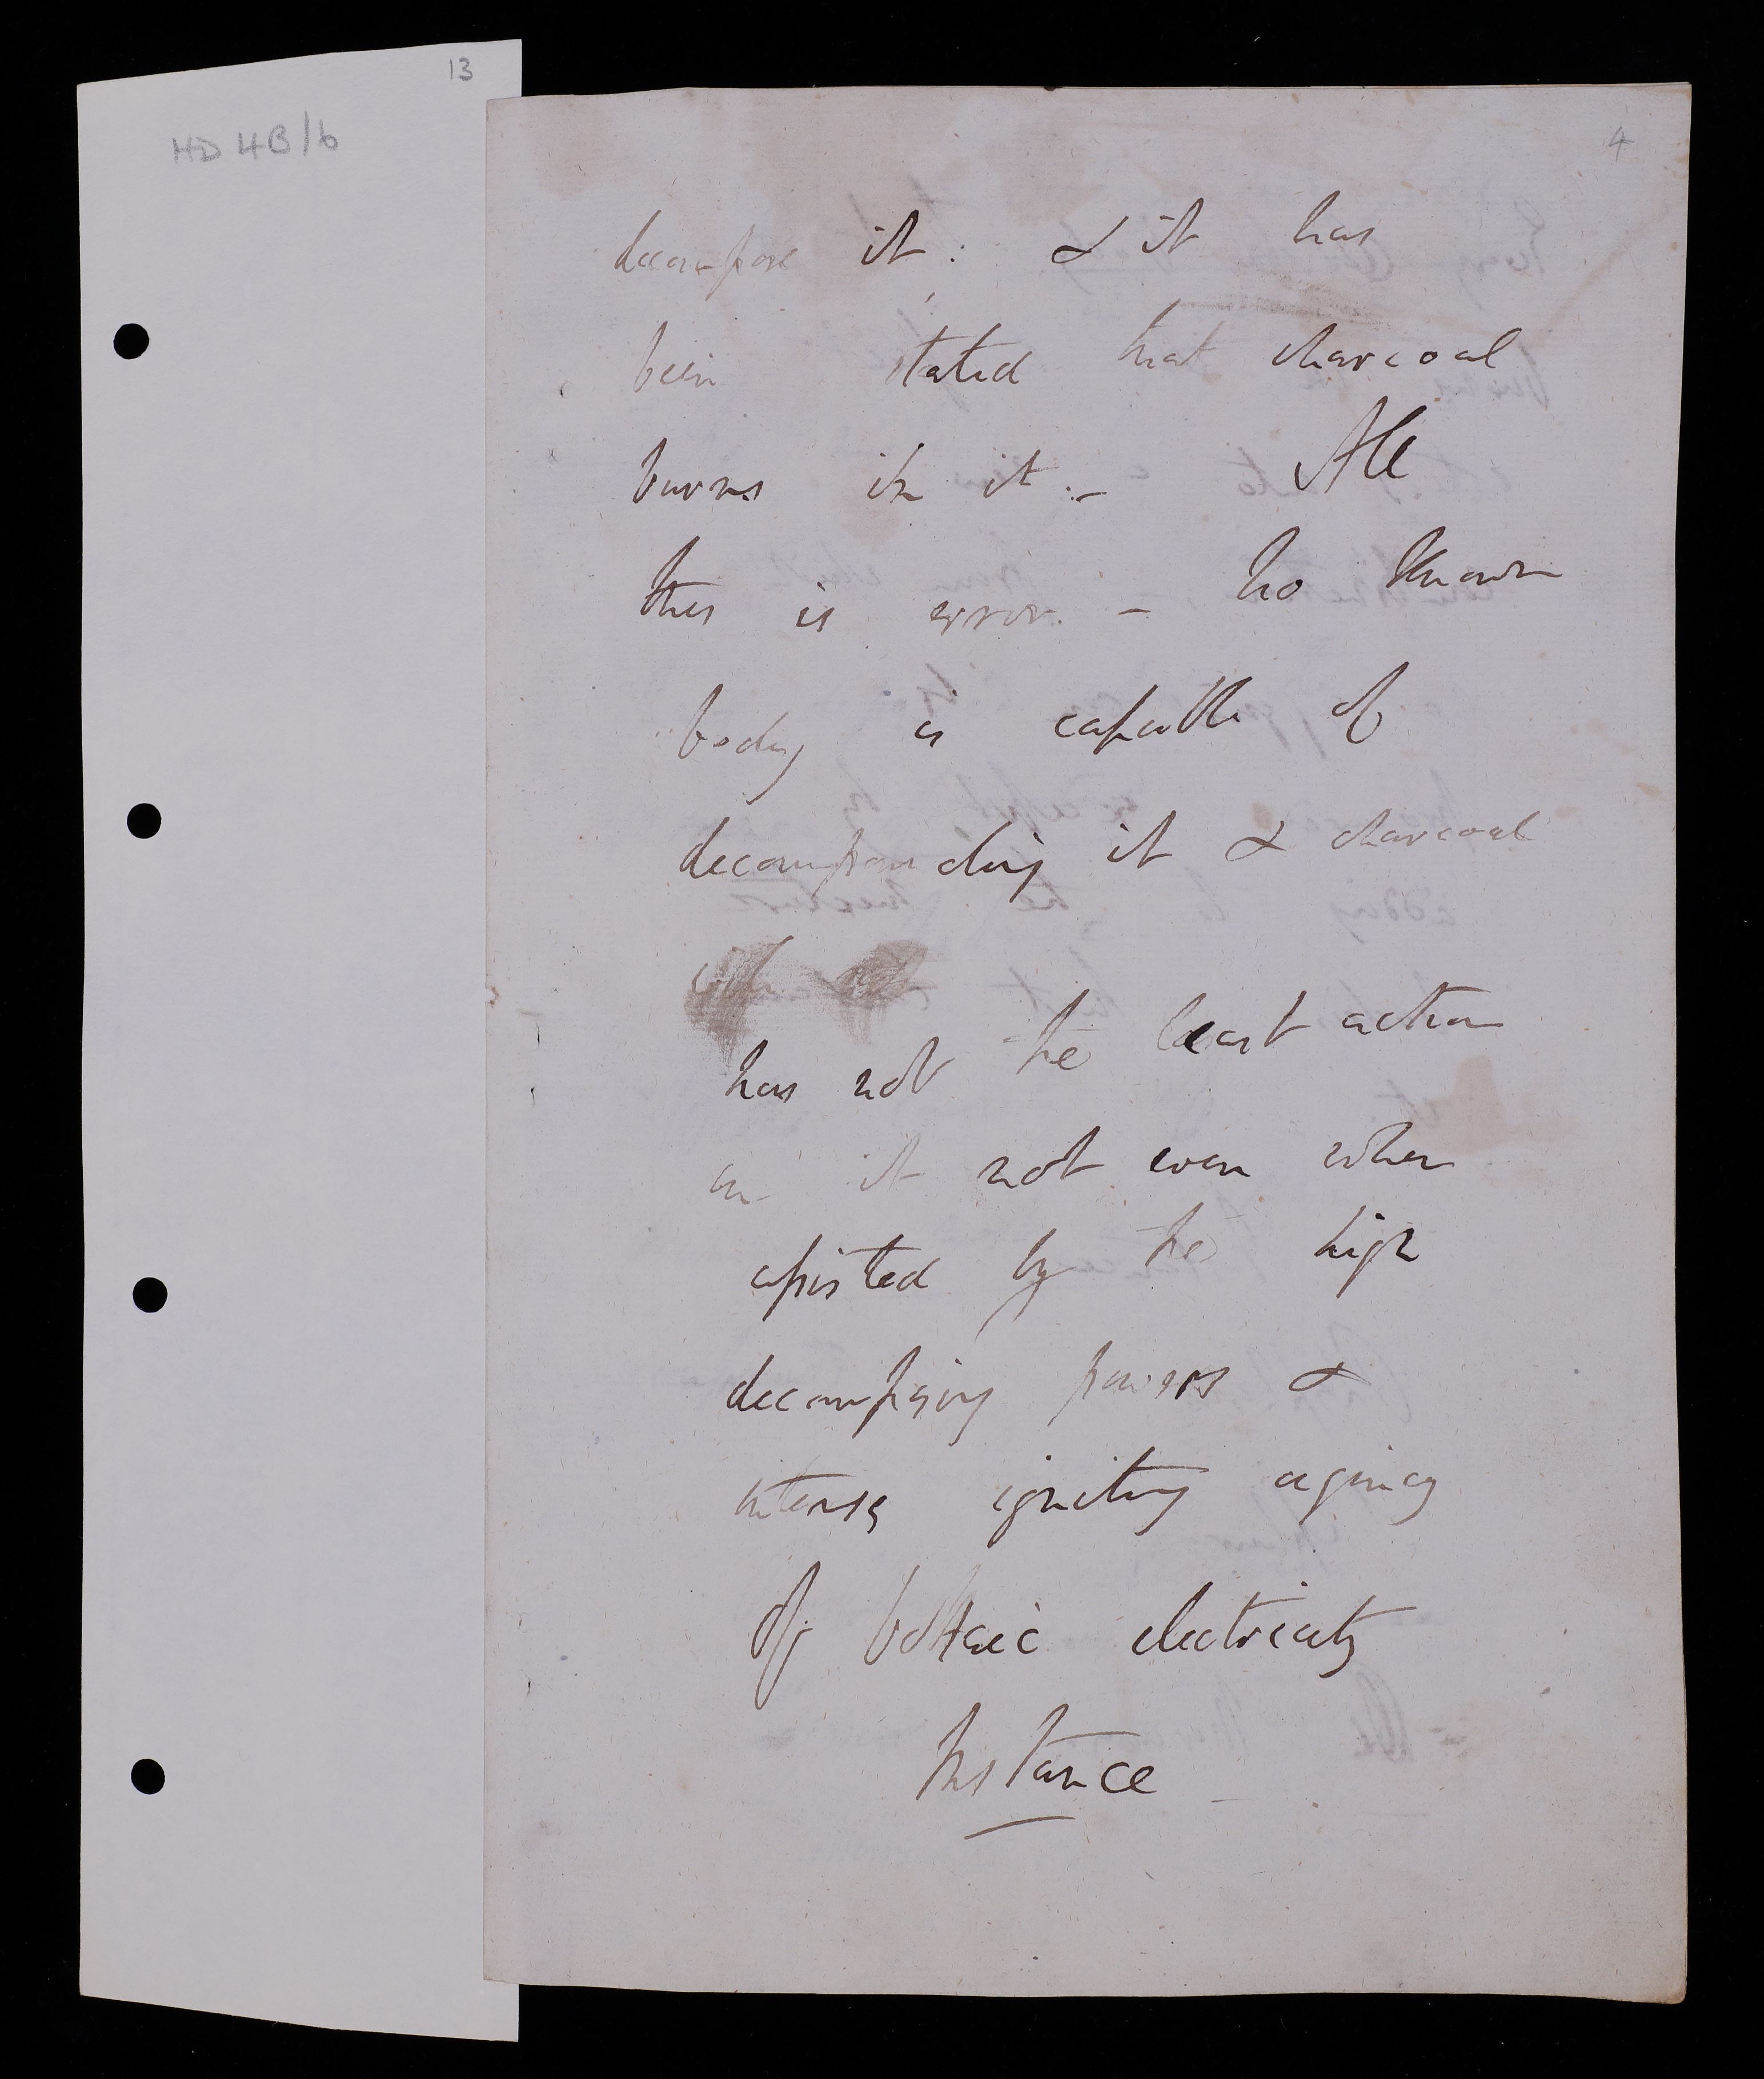 13
HD 4B/6
4
decompose it: & it has
been stated that charcoal
burns in it:- All
this is error. - no known
body is capable of
decompounding it & charcoal
has not the least action
on it not even when
assisted by the high
decomposing powers &
intense igniting agency
of Voltaic electricity
Instance